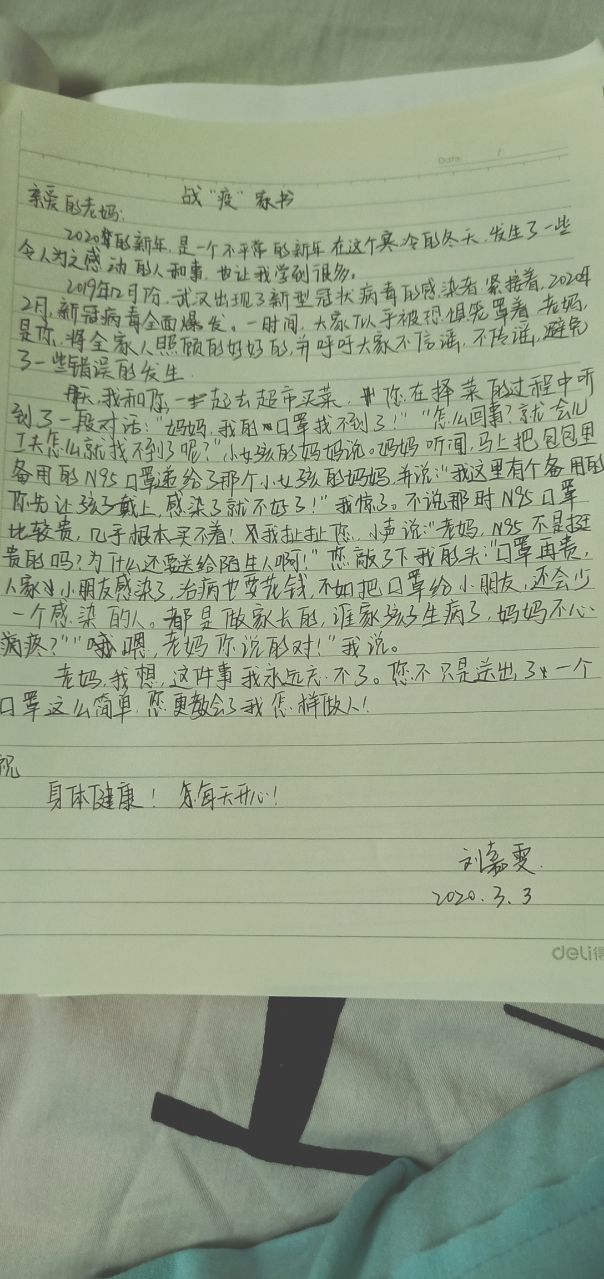 Date /
战"疫"家书
亲爱的老妈:
2020年的新年,是一个不平常的新年在这个寒冷的冬天,发生了一些
令人为之感动的人和事,也让我学到很多。
2019年12月份,武汉出现了新型冠状病毒的感染者,紧接着,2020年
2月,新冠病毒全面爆发。一时间,大家似乎被恐惧笼罩着,老妈,
是你,将全家人照顾的好好的,并呼吁大家不信谣,不传谣,避免
了一些错误的发生.
那天,我和你一起去超市买菜,你在择菜的过程中听
到了一段对话:"妈妈,我的口罩找不到了!""怎么回事?就一会儿
工夫怎么就找不到了呢?"小女孩的妈妈说。妈妈听闻,马上把包包里
备用的N95口罩递给了那个小女孩的妈妈,并说:"我这里有个备用的
你先让孩子戴上,感染了就不好了!"我惊了。不说那时N95口罩
比较贵,几乎根本买不着!我扯扯您,小声说:"老妈,N95不是挺
贵的吗?为什么还要送给陌生人啊!"您敲了下我的头:"口罩再贵,
人家小朋友感染了,治病也要花钱,不如把口罩给小朋友,还会少
一个感染的人。都是做家长的,谁家孩子生病了,妈妈不心
疼?""嗯,老妈你说的对!"我说。
老妈,我想,这件事我永远忘不了。您不只是送出了一个
口罩这么简单,您更教会了我怎样做人!
祝
身体健康!您每天开心!
刘嘉雯.
2020.3.3
deli得